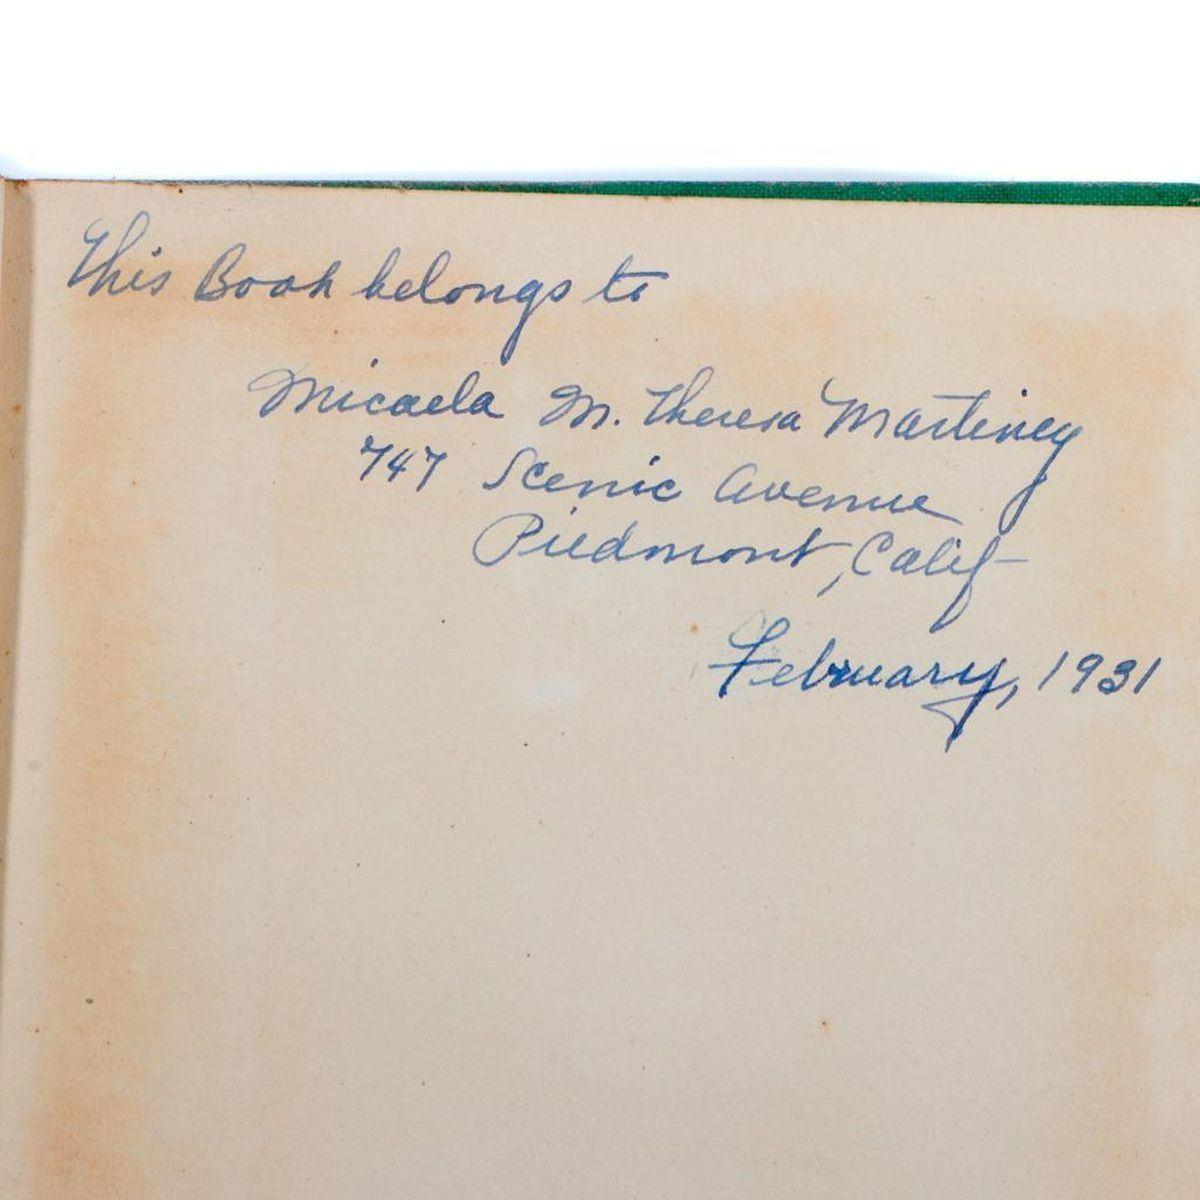 This Book belongs to
Micaela M. Theresa Martinez
747 Scenic Avenue
Piedmont, Calif
February, 1931